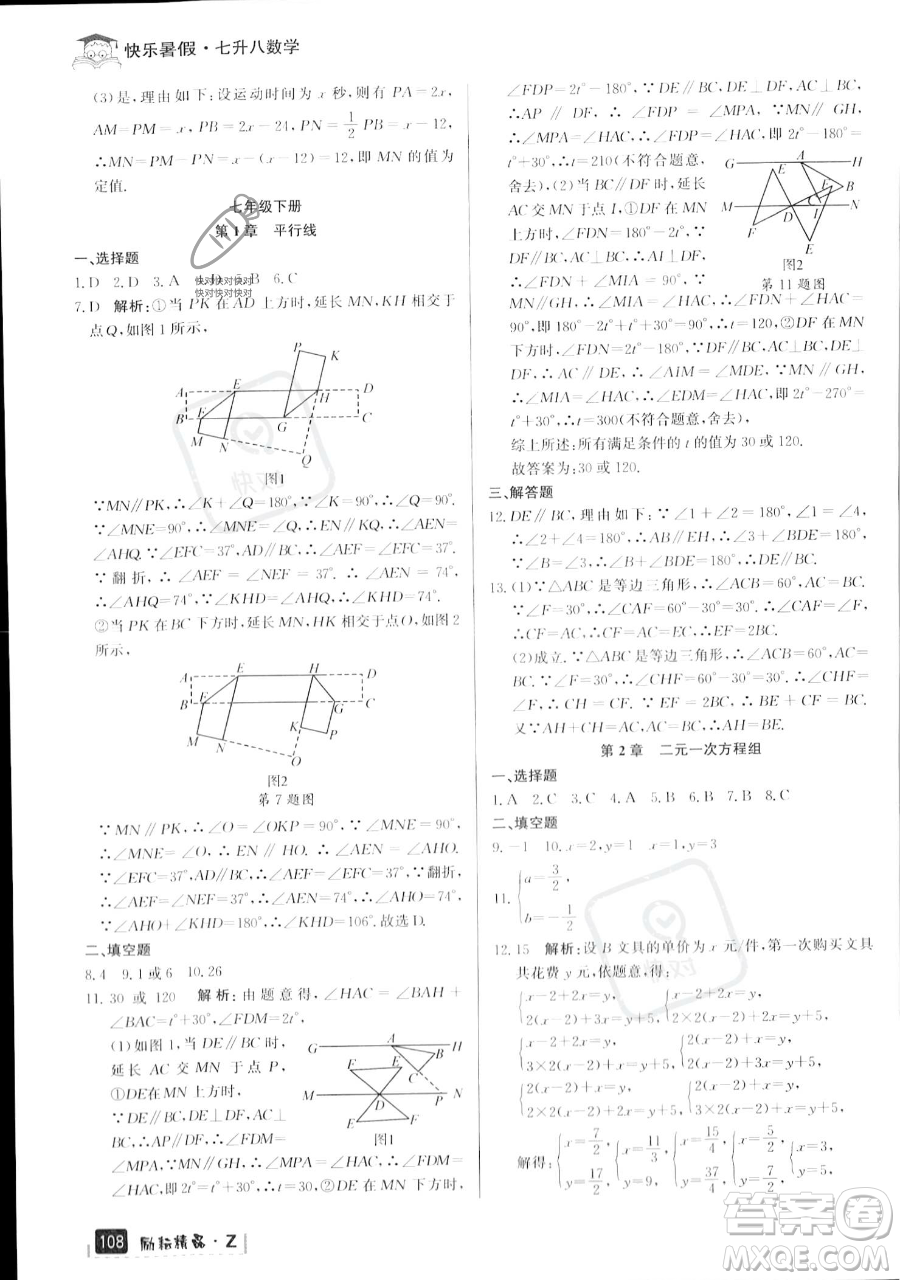 快乐暑假·七升八数学
(3)是,理由如下:设运动时间为 x 秒,则有 PA=2x,
AM=PM=x,PB=2x-24,PN=1/2 PB=x-12,
∴MN=PM-PN=x-(x-12)=12,即 MN 的值为
定值.
七年级下册
第1章 平行线
一、选择题
1.D 2.D 3.A 4.D 5.B 6.C
快对快对快对
快对快对快对
7.D 解析:①当 PK 在 AD 上方时,延长 MN,KH 相交于
点Q,如图1所示,
P
K
A E H D
B F G C
M N
Q
图1
∵MN∥PK,∴∠K+∠Q=180°,∵∠K=90°,∴∠Q
=90°.∵∠MNE=90°,∴EN∥HQ,∴∠AEN=
∠AHQ.∵∠EFC=37°,AD∥BC,∴∠AEF=37°.
∵翻折,∴∠AEF=∠NEF=37°.∴∠AEN=74°,
∴∠AHQ=74°,∴∠KHD=∠AHQ=74°.
②当 PK 在 BC 下方时,延长 MN,HK 相交于点O,如图2
所示,
A E H D
B F G C
M N K P
O
图2
第7题图
∵MN∥PK,∴∠O=∠OKP=90°,∵∠MNE=90°,
∴∠MNE=∠O,∴EN∥HO.∴∠AEN=∠AHO.
∵∠EFC=37°,AD∥BC,∴∠AEF=37°.∵翻折,
∴∠AEF=∠NEF=37°.∴∠AEN=74°,∴∠AHO
=74°,∵∠AHO+∠KHD=180°,∴∠KHD=106°.故选 D.
二、填空题
8.4 9.1或6 10.26
11.30 或 120 解析:由题意得,∠HAC=∠BAH+
∠BAC=t°+30°,∠FDM=2t°,
(1)如图1,当DE∥BC时,
延长 AC 交 MN 于点 P,
①DE在MN上方时,
∵DE∥BC,DE⊥DF,AC⊥
BC,∴AP∥DF,∴∠FDM=
∠MPA,∵MN∥GH,∴∠MPA=∠HAC,∴∠FDM
=∠HAC,即2t°=t°+30°,∴t=30,②DE在MN下方时,
G A H
E E B
C
M D P N
F F
图1
∠FDP=2t°-180°,∵DE∥BC,DE⊥DF,AC⊥BC,
∴AP∥DF,∴∠FDP=∠MPA,∵MN∥GH,
∴∠MPA=∠HAC,∴∠FDP=∠HAC,即2t°-180°=
t°+30°,∴t=210(不符合题意,
舍去),(2)当DF∥BC时,延长
AC交MN于点I,①DF在MN
上方时,∠FDN=180°-2t°,
∵DF∥BC,AC⊥BC,∴AI⊥
DF,∴∠FDN+∠MIA=90°,
∵MN∥GH,∴∠MIA=
∠HAC,∴∠FDN+∠HAC=
90°,即180°-2t°+t°+30°=90°,∴t=120,②DF在MN
下方时,∠FDN=2t°-180°,∵DF∥BC,AC⊥BC,DE
⊥DF,∴AC∥DE,∴∠AIM=∠MDE,∵MN∥GH,
∴∠MIA=∠HAC,∴∠EDM=∠HAC,即2t°-270°=
t°+30°,∴t=300(不符合题意,舍去),
综上所述:所有满足条件的t的值为30或120.
故答案为:30或120.
G A H
E F B
C
M D I N
F E
图2
第11题图
三、解答题
12.DE∥BC,理由如下:∵∠1+∠2=180°,∠1=∠4,
∴∠2+∠4=180°,∴EH∥AB,∴∠B=∠EHC.
∵∠3=∠B,∴∠3=∠EHC,∴DE∥BC.
13.(1)∵△ABC是等边三角形,∴∠CAB=∠ACB=60°.
∵∠F=30°,∴∠CAF=60°-30°=30°,∴∠CAF=
∠F,∴CF=AC.∵CF=AC=AE,∴EF=2BC.
(2)成立.∵△ABC是等边三角形,∴∠ACB=60°,
∵∠F=30°,∴∠CHF=60°-30°=30°,∴∠CHF=
∠F,∴CH=CF.∵EF=2BC,∴BE+CF=BC.
又∵AH+CH=AC,AC=BC,∴AH=BE.
第2章 二元一次方程组
一、选择题
1.A 2.C 3.C 4.C 5.A 6.B 7.B 8.C
二、填空题
9.-1 10.x=2,y=1 x=1,y=3
11.{a=3/2, b=-1/2
12.15 解析:设B文具的单价为x元/件,第一次购买文具
共花费y元,依题意,得:
{x-2+2x=y, 2(x-2)+x=y+5, {x-2+2x=y, 2×2(x-2)+x=y+5,
{2(x-2)+x=y, 3×2(x-2)+x=y+5, {2(x-2)+x=y, 2×2(x-2)+2x=y+5,
{2(x-2)+x=y, 2(x-2)+3x=y+5,
解得:{x=7/2, y=17/2 {x=11/3, y=9, {x=15/4, y=29/4, {x=5/2, y=7/2, {x=3, y=5,
108 励耘精品·Z
快对
快对
答案圈
MXQE.COM